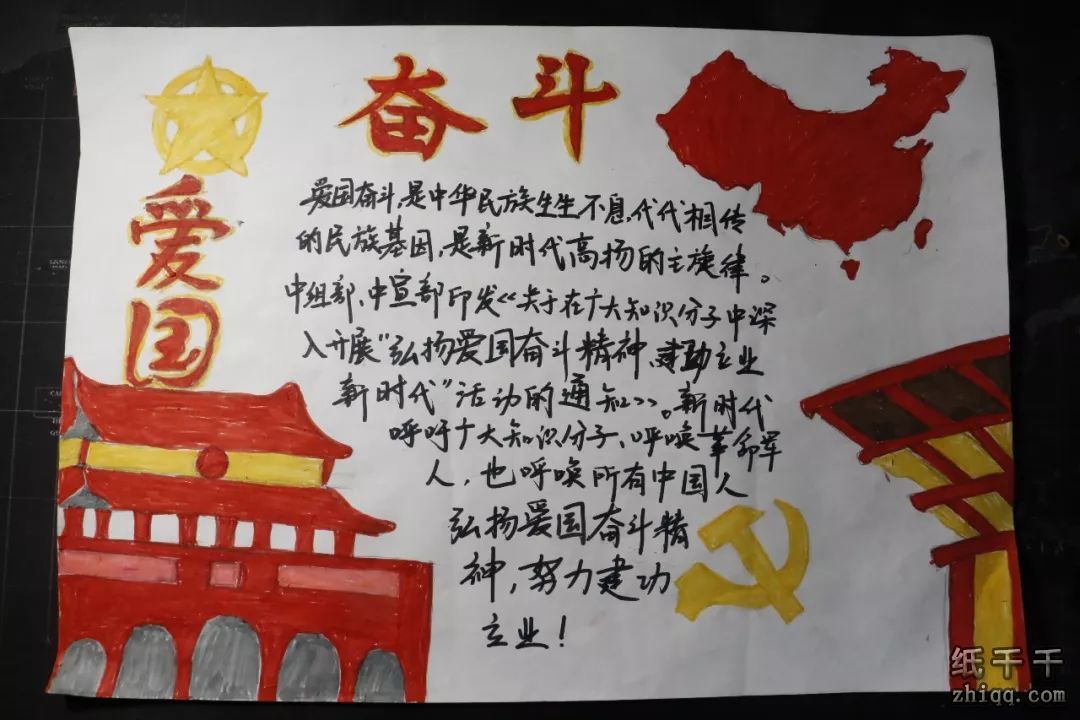 奋斗
爱国
爱国奋斗,是中华民族生生不息,代代相传
的民族基因,是新时代高扬的主旋律。
中组部、中宣部印发《关于在广大知识分子中深
入开展"弘扬爱国奋斗精神、建功立业
新时代"活动的通知》。新时代
呼吁广大知识分子、呼唤革命军
人,也呼唤所有中国人
弘扬爱国奋斗精
神,努力建功
立业!
纸千千
zhiqq.com